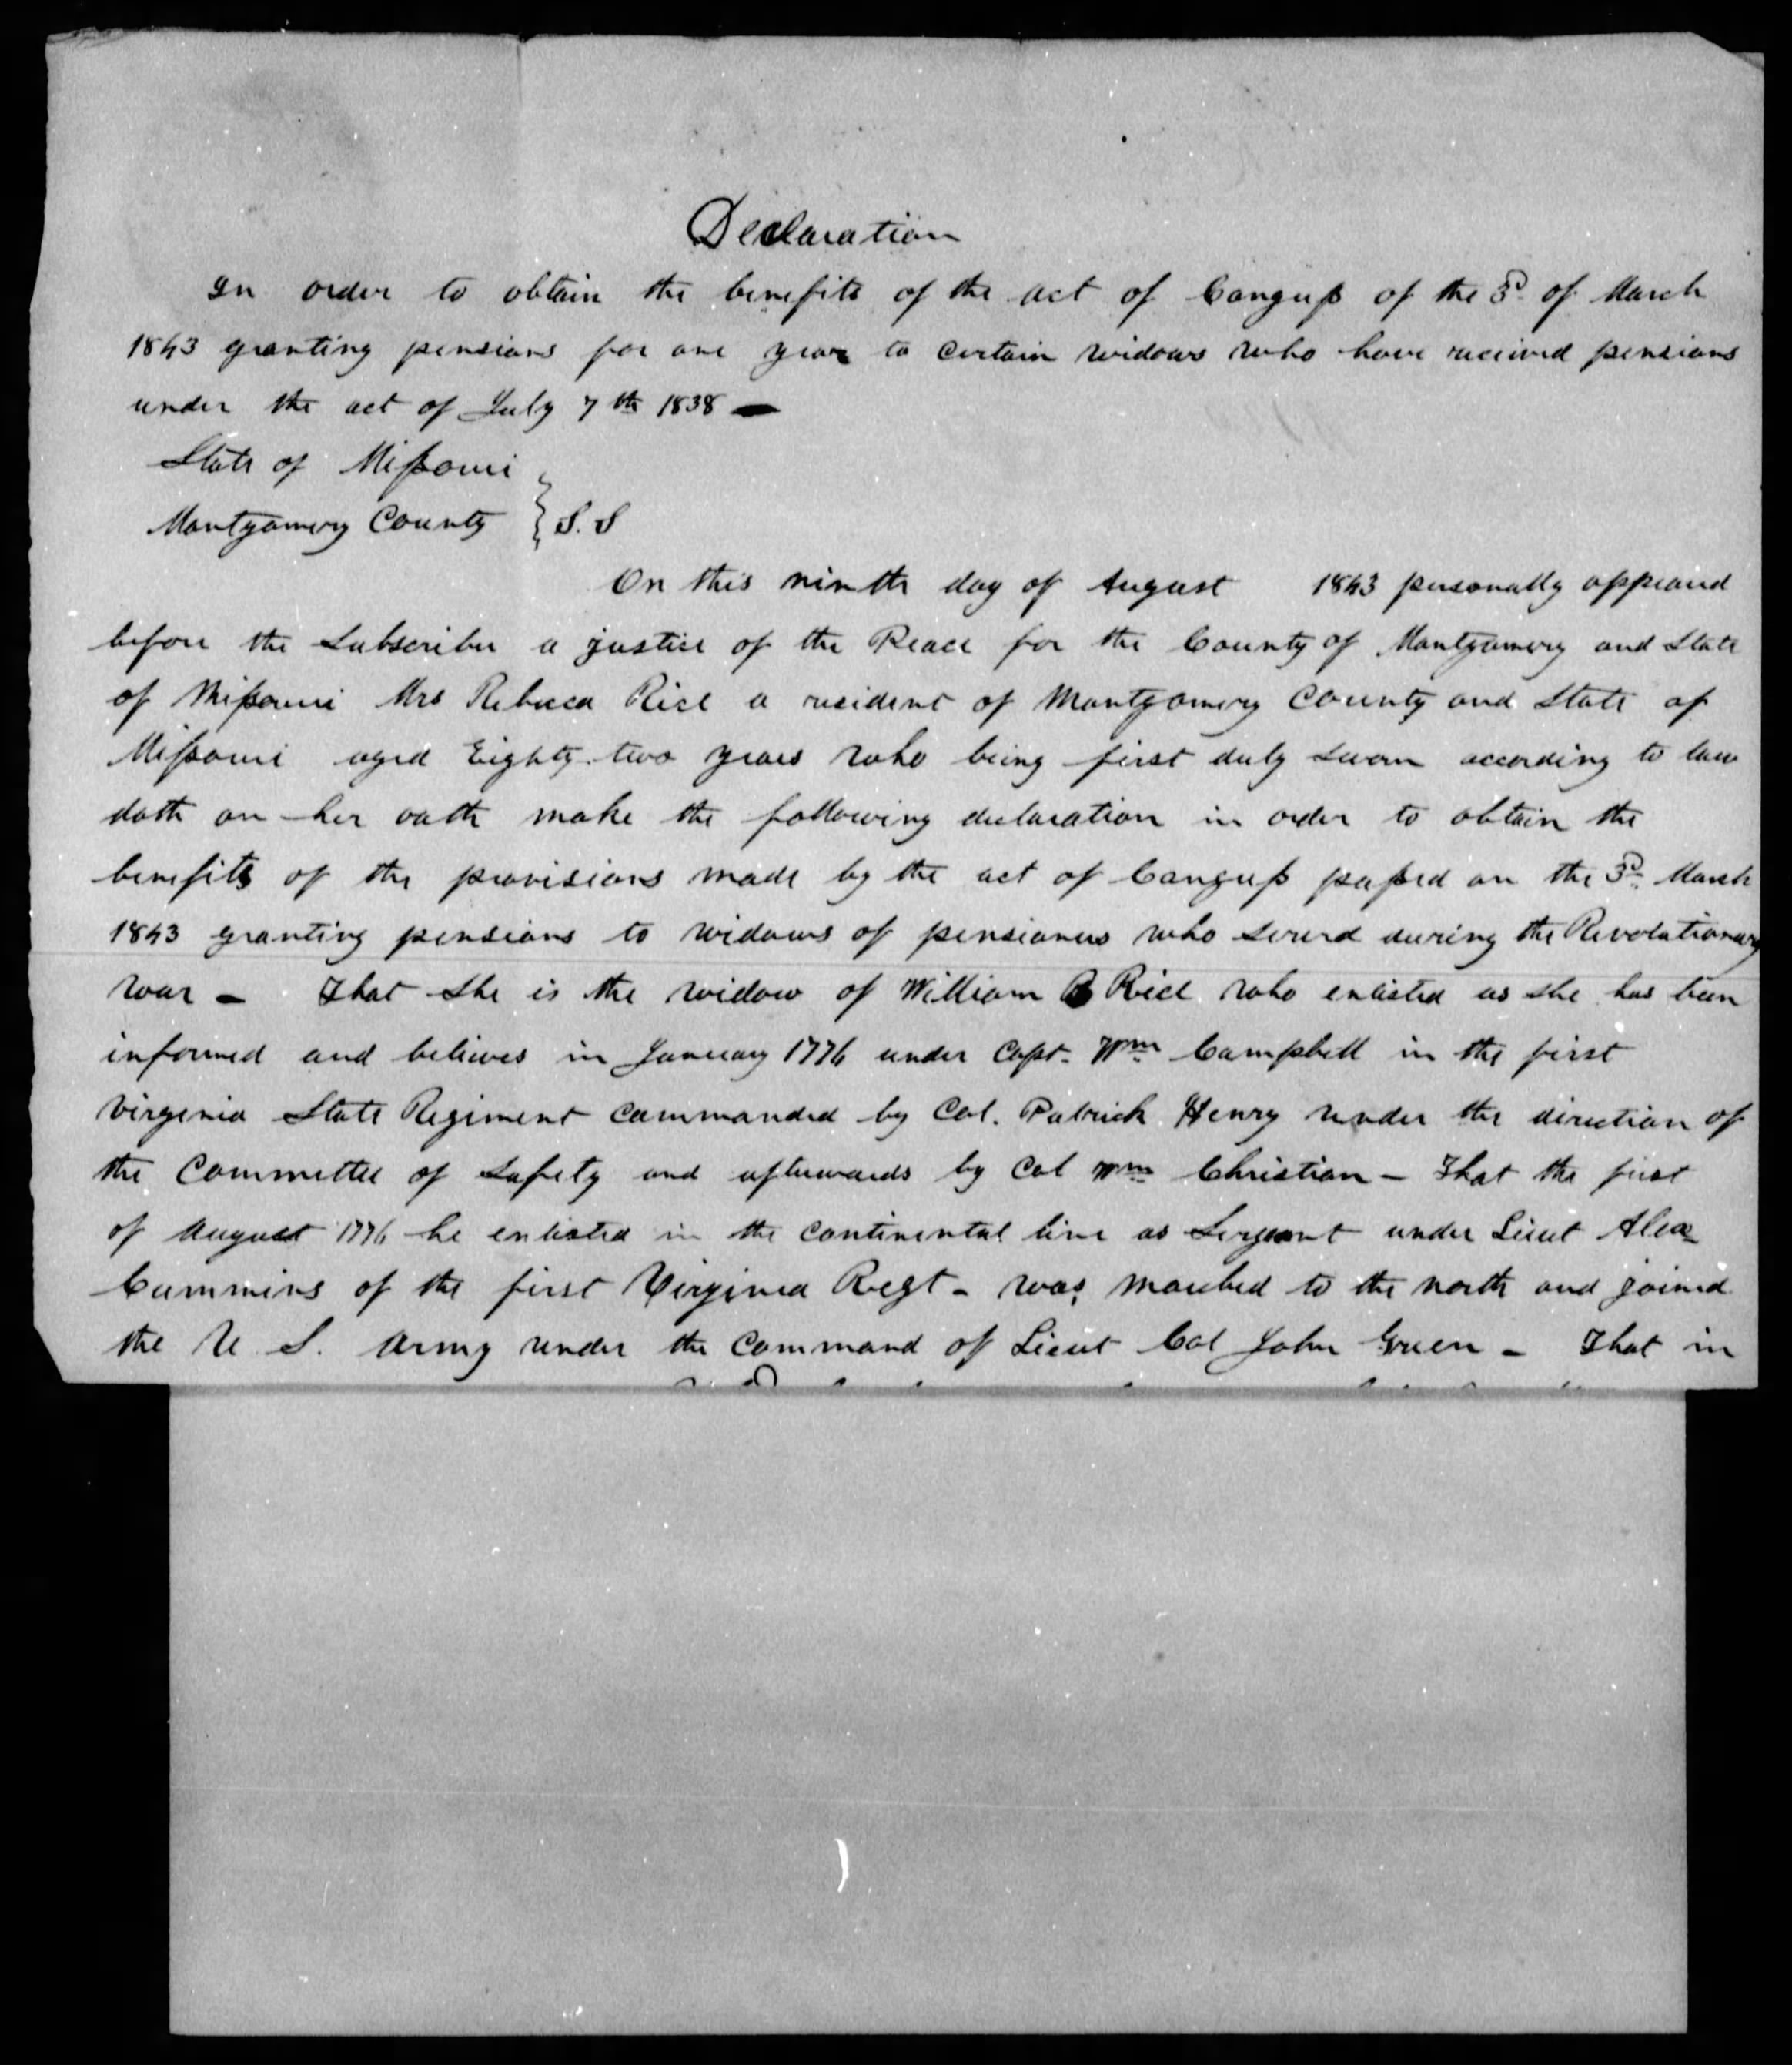 Declaration
In order to obtain the benefits of the act of Congress of the 3d of March
1843 granting pensions for one year to certain widows who have received pensions
under the act of July 7th 1838 —
State of Missouri
Montgomery County } S. S
On this ninth day of August 1843 personally appeared
before the Subscriber a justice of the Peace for the County of Montgomery and State
of Missouri Mrs Rebecca Rice a resident of Montgomery County and State of
Missouri aged Eighty two years who being first duly sworn according to law
doth on her oath make the following declaration in order to obtain the
benefits of the provisions made by the act of Congress passed on the 3d March
1843 granting pensions to widows of pensioners who served during the Revolutionary
war - That she is the widow of William B Rice who enlisted as she has been
informed and believes in January 1776 under Capt. Wm Campbell in the first
Virginia State Regiment commanded by Col. Patrick Henry under the direction of
the Committee of Safety and afterwards by Col Wm Christian - That the first
of August 1776 he enlisted in the continental line as Sergeant under Lieut Alex
Cummins of the first Virginia Regt - was marched to the north and joined
the U. S. Army under the command of Lieut Col John Green - That in